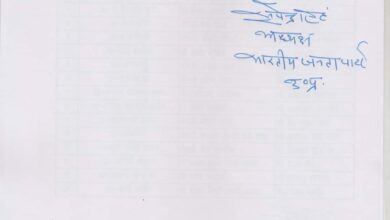 अध्यक्ष
भारतीय जनता पार्टी
उ०प्र०